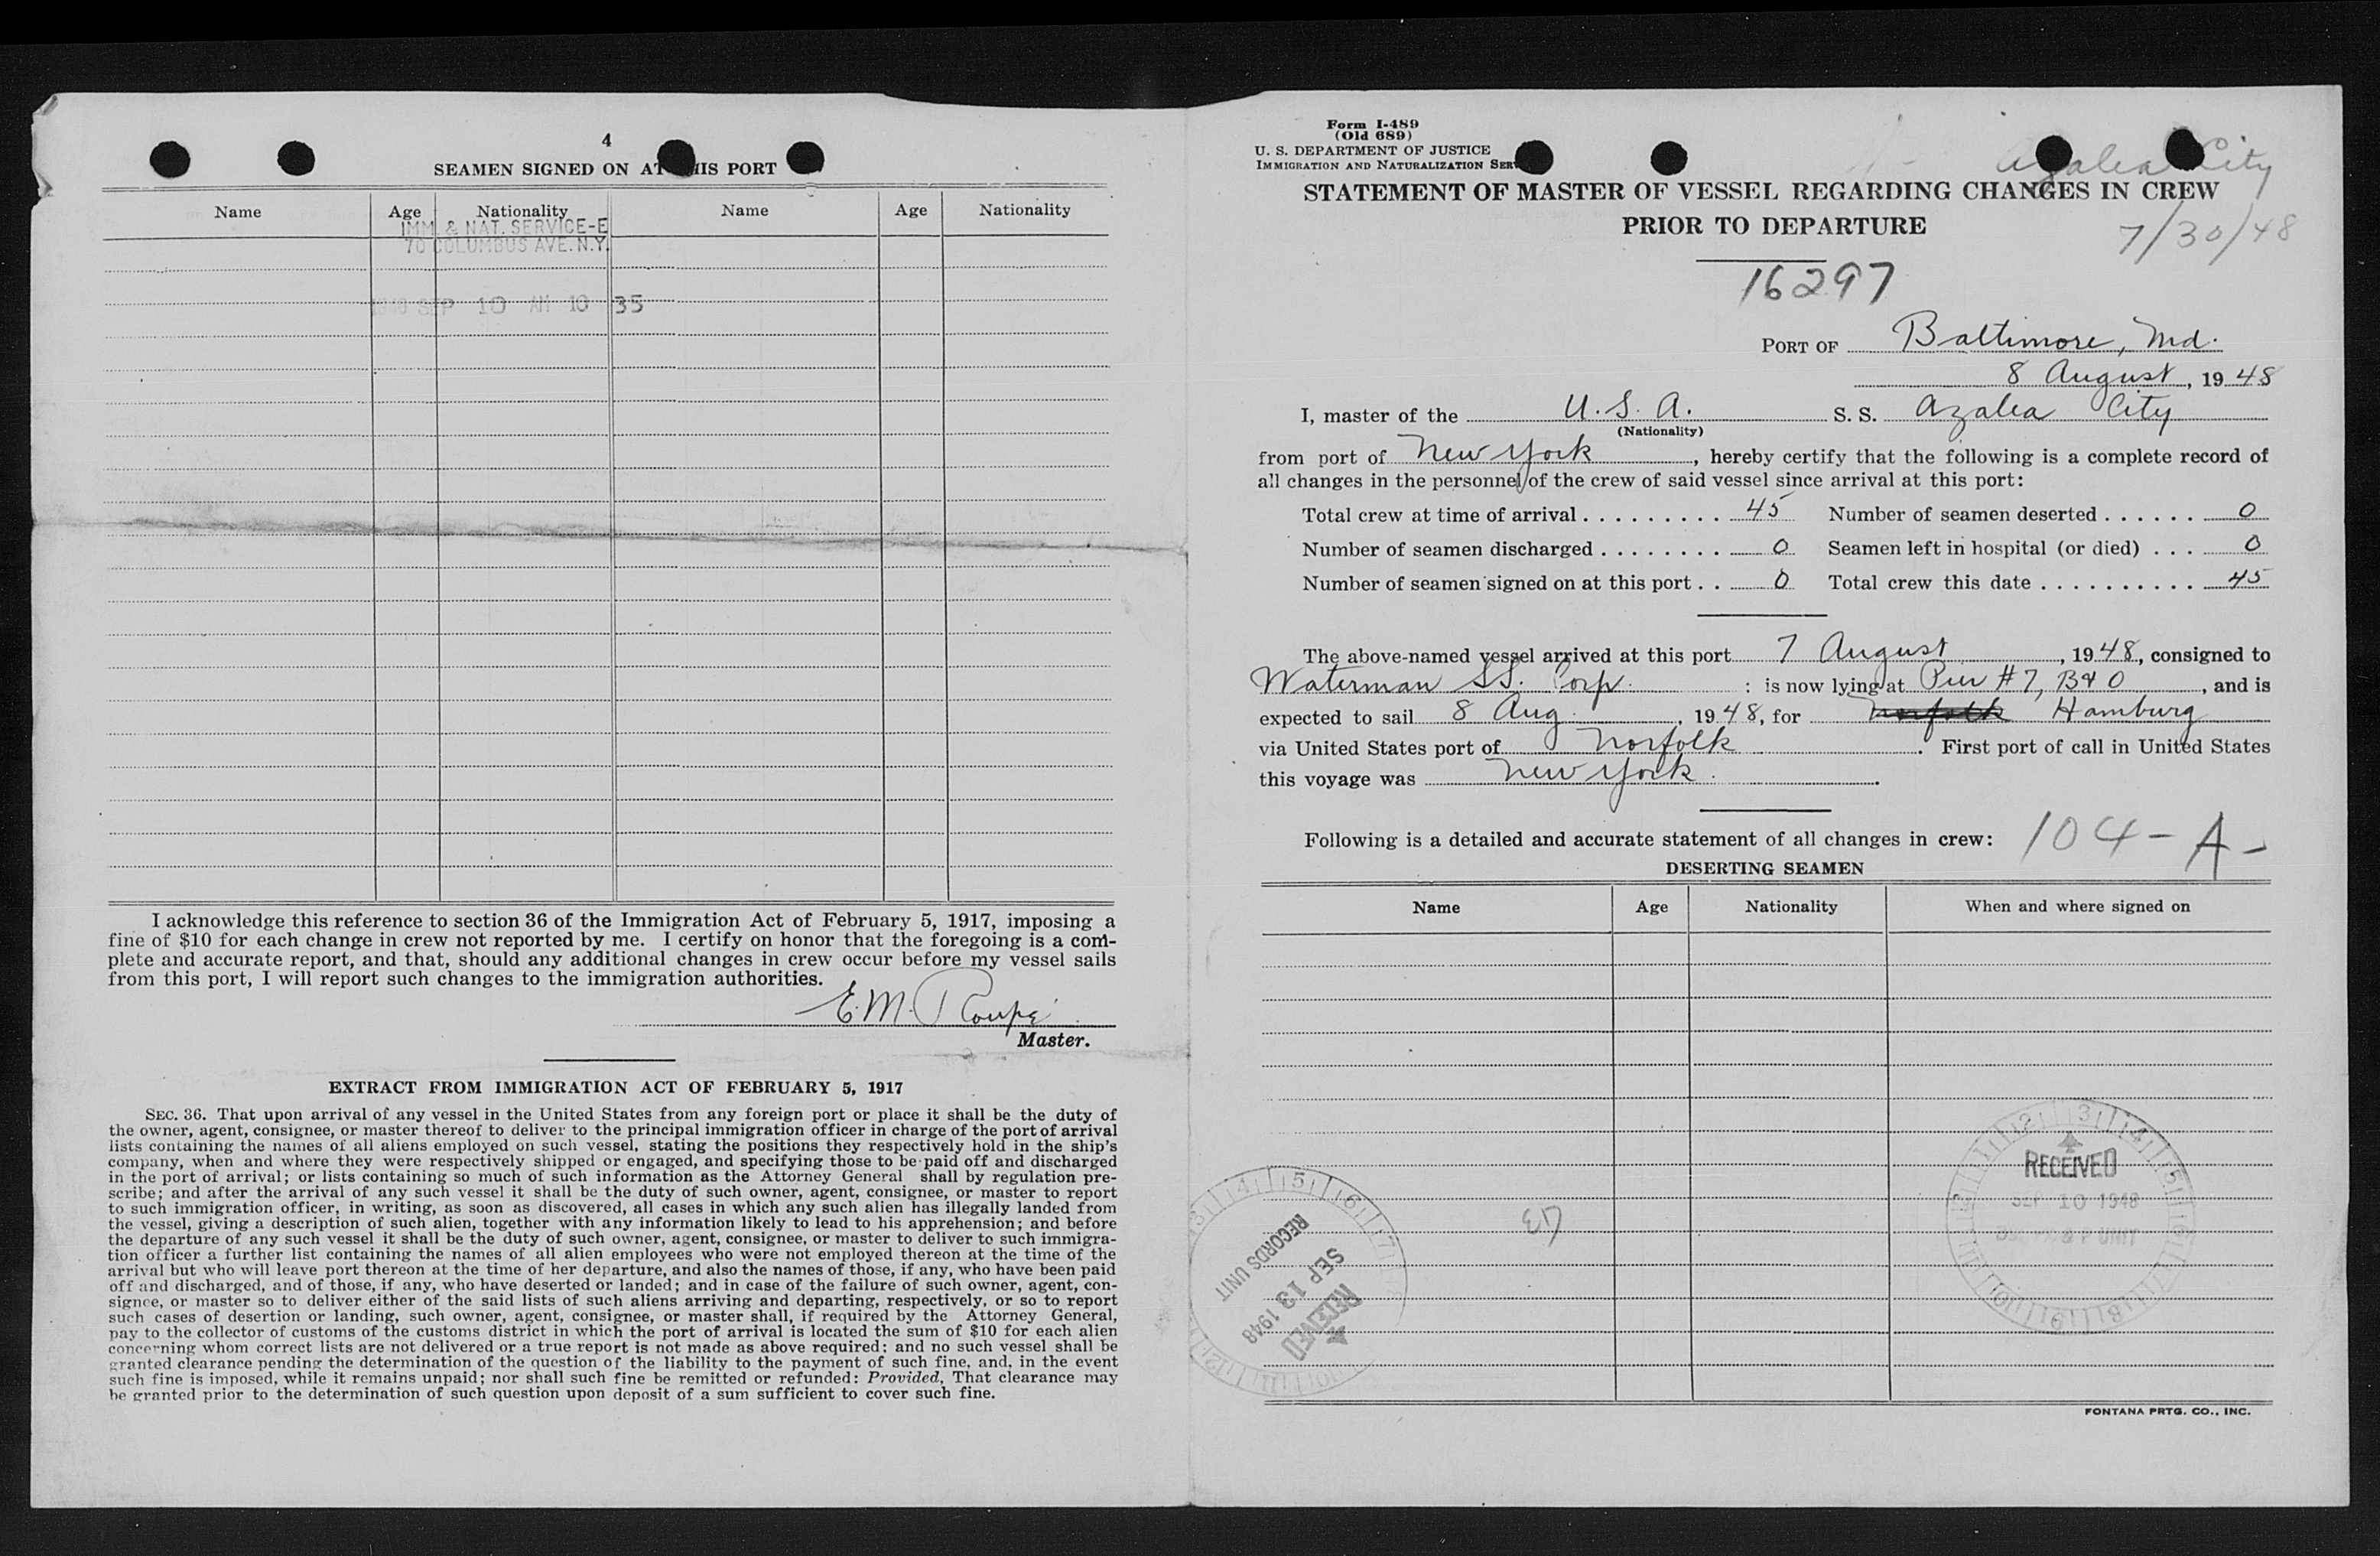 4
SEAMEN SIGNED ON AT THIS PORT
Name Age Nationality Name Age Nationality
IMM. & NAT. SERVICE-E
70 COLUMBUS AVE. N.Y.
1948 SEP 10 AM 10 35
I acknowledge this reference to section 36 of the Immigration Act of February 5, 1917, imposing a
fine of $10 for each change in crew not reported by me. I certify on honor that the foregoing is a com-
plete and accurate report, and that, should any additional changes in crew occur before my vessel sails
from this port, I will report such changes to the immigration authorities.
E. M. Roupe
Master.
EXTRACT FROM IMMIGRATION ACT OF FEBRUARY 5, 1917
SEC. 36. That upon arrival of any vessel in the United States from any foreign port or place it shall be the duty of
the owner, agent, consignee, or master thereof to deliver to the principal immigration officer in charge of the port of arrival
lists containing the names of all aliens employed on such vessel, stating the positions they respectively hold in the ship's
company, when and where they were respectively shipped or engaged, and specifying those to be paid off and discharged
in the port of arrival; or lists containing so much of such information as the Attorney General shall by regulation pre-
scribe; and after the arrival of any such vessel it shall be the duty of such owner, agent, consignee, or master to report
to such immigration officer, in writing, as soon as discovered, all cases in which any such alien has illegally landed from
the vessel, giving a description of such alien, together with any information likely to lead to his apprehension; and before
the departure of any such vessel it shall be the duty of such owner, agent, consignee, or master to deliver to such immigra-
tion officer a further list containing the names of all alien employees who were not employed thereon at the time of the
arrival but who will leave port thereon at the time of her departure, and also the names of those, if any, who have been paid
off and discharged, and of those, if any, who have deserted or landed; and in case of the failure of such owner, agent, con-
signee, or master so to deliver either of the said lists of such aliens arriving and departing, respectively, or so to report
such cases of desertion or landing, such owner, agent, consignee, or master shall, if required by the Attorney General,
pay to the collector of customs of the customs district in which the port of arrival is located the sum of $10 for each alien
concerning whom correct lists are not delivered or a true report is not made as above required; and no such vessel shall be
granted clearance pending the determination of the question of the liability to the payment of such fine, and, in the event
such fine is imposed, while it remains unpaid; nor shall such fine be remitted or refunded: Provided, That clearance may
be granted prior to the determination of such question upon deposit of a sum sufficient to cover such fine.
Form I-489
(Old 689)
U. S. DEPARTMENT OF JUSTICE
IMMIGRATION AND NATURALIZATION SERV
Azalea City
STATEMENT OF MASTER OF VESSEL REGARDING CHANGES IN CREW
PRIOR TO DEPARTURE
7/30/48
16297
PORT OF Baltimore, Md.
8 August, 1948
I, master of the U.S.A. S. S. Azalea City
(Nationality)
from port of New York, hereby certify that the following is a complete record of
all changes in the personnel of the crew of said vessel since arrival at this port:
Total crew at time of arrival 45 Number of seamen deserted 0
Number of seamen discharged 0 Seamen left in hospital (or died) 0
Number of seamen signed on at this port 0 Total crew this date 45
The above-named vessel arrived at this port 7 August, 1948, consigned to
Waterman SS. Corp. : is now lying at Pier #7, B&O, and is
expected to sail 8 Aug., 1948, for Norfolk Hamburg
via United States port of Norfolk. First port of call in United States
this voyage was New York.
Following is a detailed and accurate statement of all changes in crew: 104-A-
DESERTING SEAMEN
Name Age Nationality When and where signed on
RECEIVED
SEP 10 1948
RECORDS UNIT
SEP 13 1948
RECEIVED
FONTANA PRTG. CO., INC.